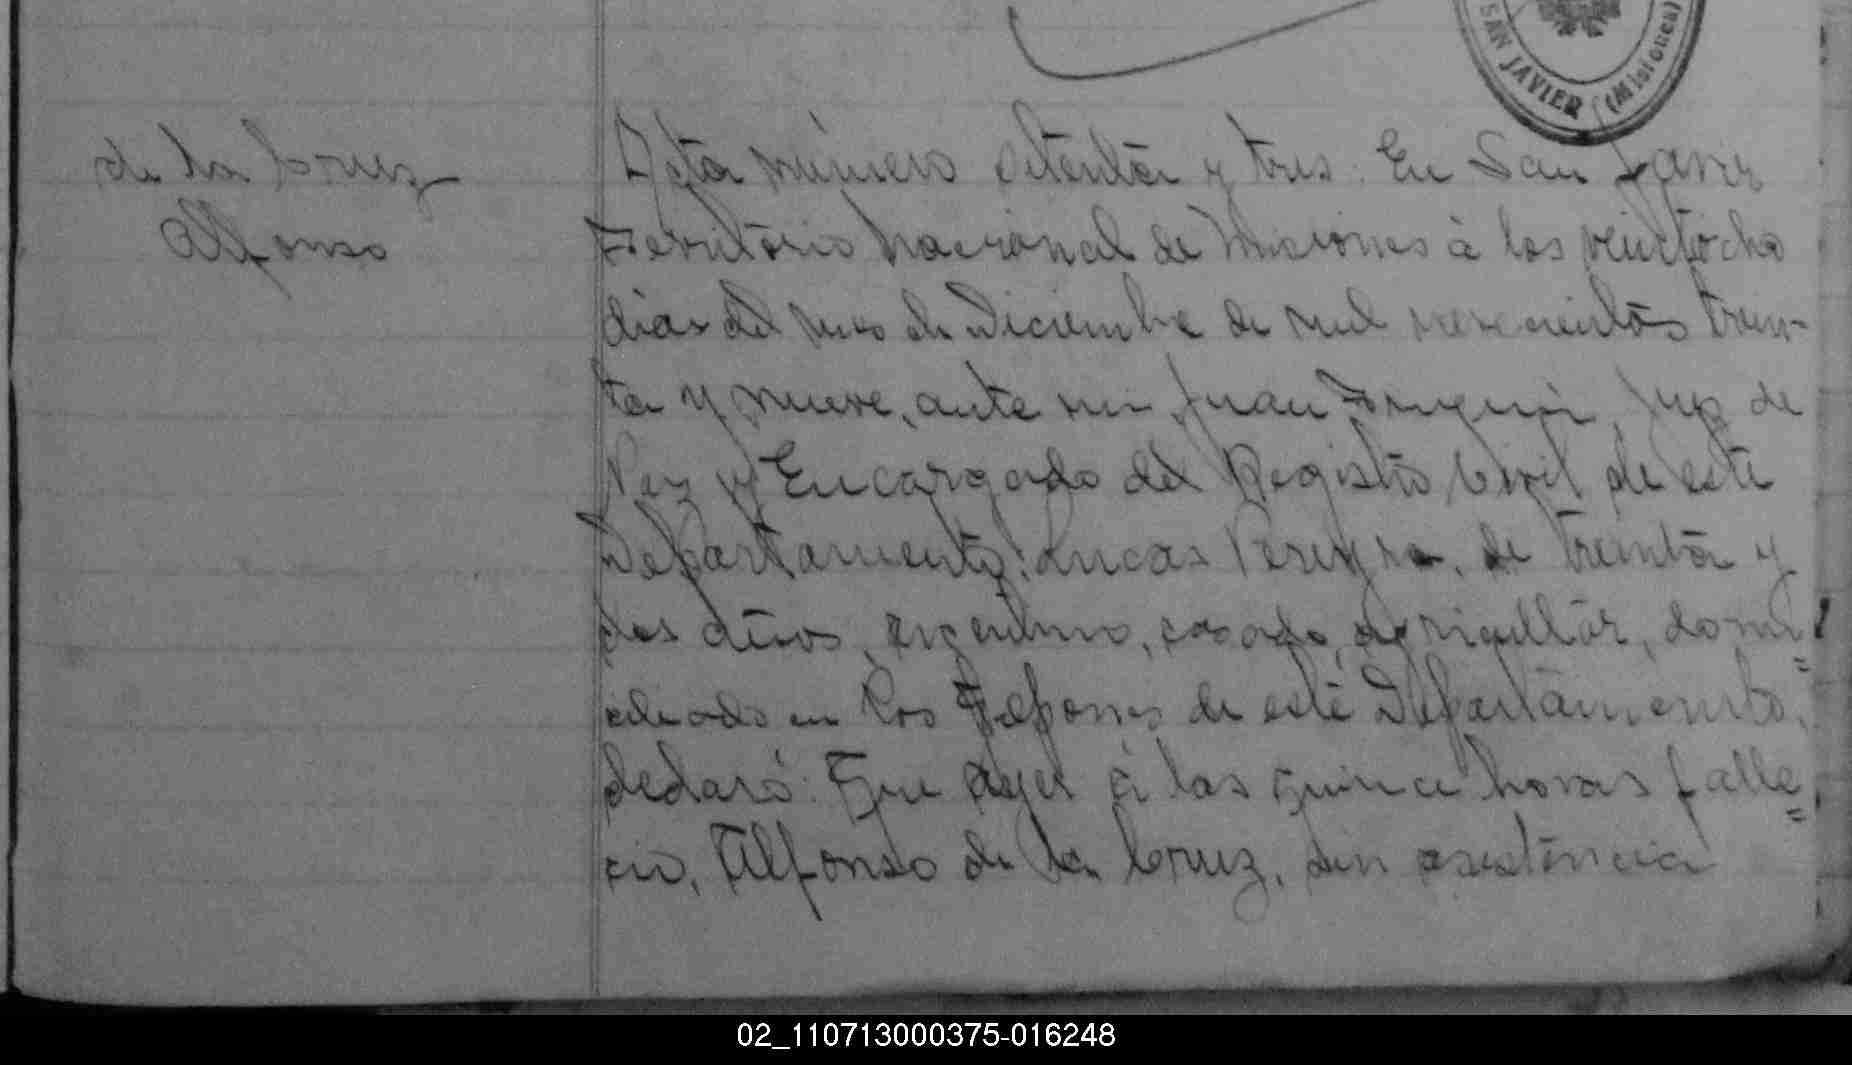 SAN JAVIER (Misiones)
de la Cruz
Alfonso
Acta número setenta y tres. En San Javier
Territorio Nacional de Misiones à los veintiocho
dias del mes de Diciembre de mil novecientos trein-
ta y nueve, ante mi Juan Juez de
Paz y Encargado del Registro Civil de este
Departamento: Lucas Pereyra, de treinta y
dos años, argentino, casado, agricultor, domi=
ciliado en Los Galpones de este Departamento,
declaró: Que ayer à las quince horas falle=
ció, Alfonso de la Cruz, sin asistencia
02_110713000375-016248